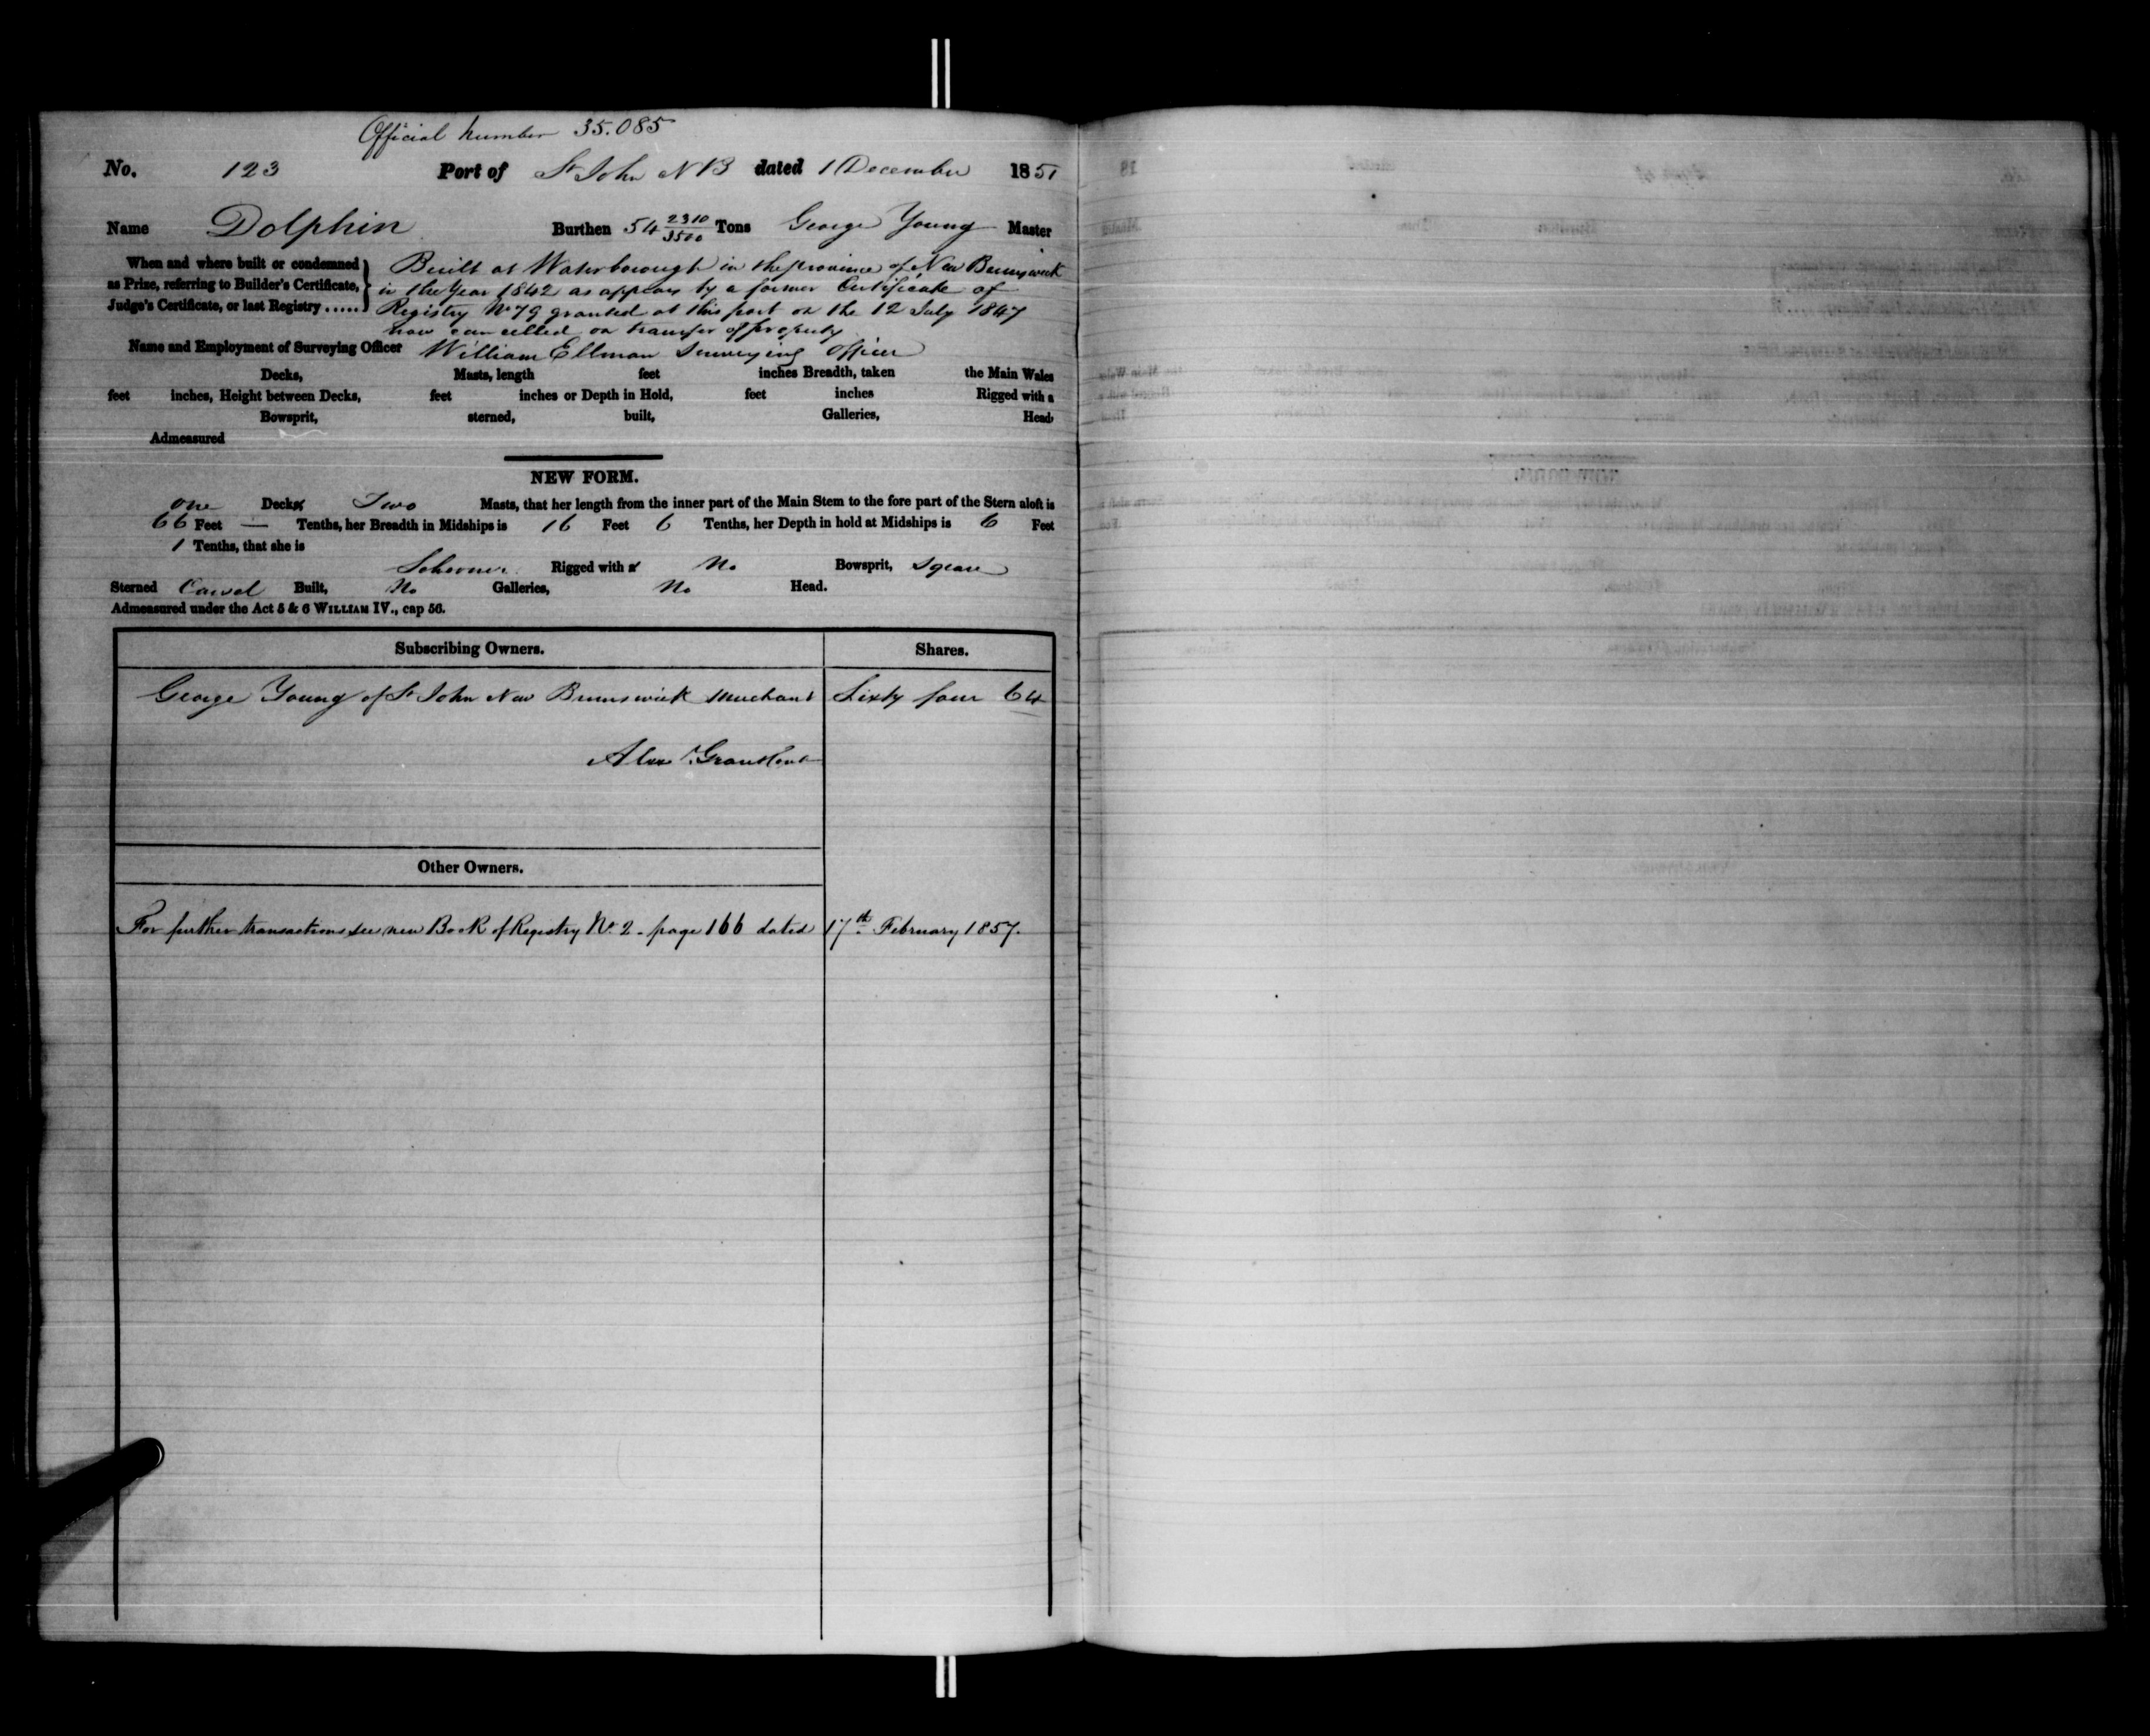 Official number 35.085
No. 123 Port of St John N B dated 1 December 1851
Name Dolphin Burthen 54 2310/3500 Tons George Young Master
When and where built or condemned as Prize, referring to Builder's Certificate, Judge's Certificate, or last Registry .....
Built at Waterborough in the province of New Brunswick
in the Year 1842 as appears by a former Certificate of
Registry No 79 granted at this port on the 12 July 1847
now cancelled on transfer of property
Name and Employment of Surveying Officer William Ellman Surveying Officer
Decks, Masts, length feet inches Breadth, taken the Main Wales
feet inches, Height between Decks, feet inches or Depth in Hold, feet inches Rigged with a
Bowsprit, sterned, built, Galleries, Head
Admeasured
NEW FORM.
one Decks Two Masts, that her length from the inner part of the Main Stem to the fore part of the Stern aloft is
66 Feet — Tenths, her Breadth in Midships is 16 Feet 6 Tenths, her Depth in hold at Midships is 6 Feet
1 Tenths, that she is
Schooner Rigged with a No Bowsprit, Square
Sterned Carvel Built, No Galleries, No Head.
Admeasured under the Act 5 & 6 WILLIAM IV., cap 56.
Subscribing Owners. Shares.
George Young of St John New Brunswick Merchant Sixty four 64
Alexr Grant
Other Owners.
For further transactions see new Book of Registry No. 2 - page 166 dated 17th February 1857.